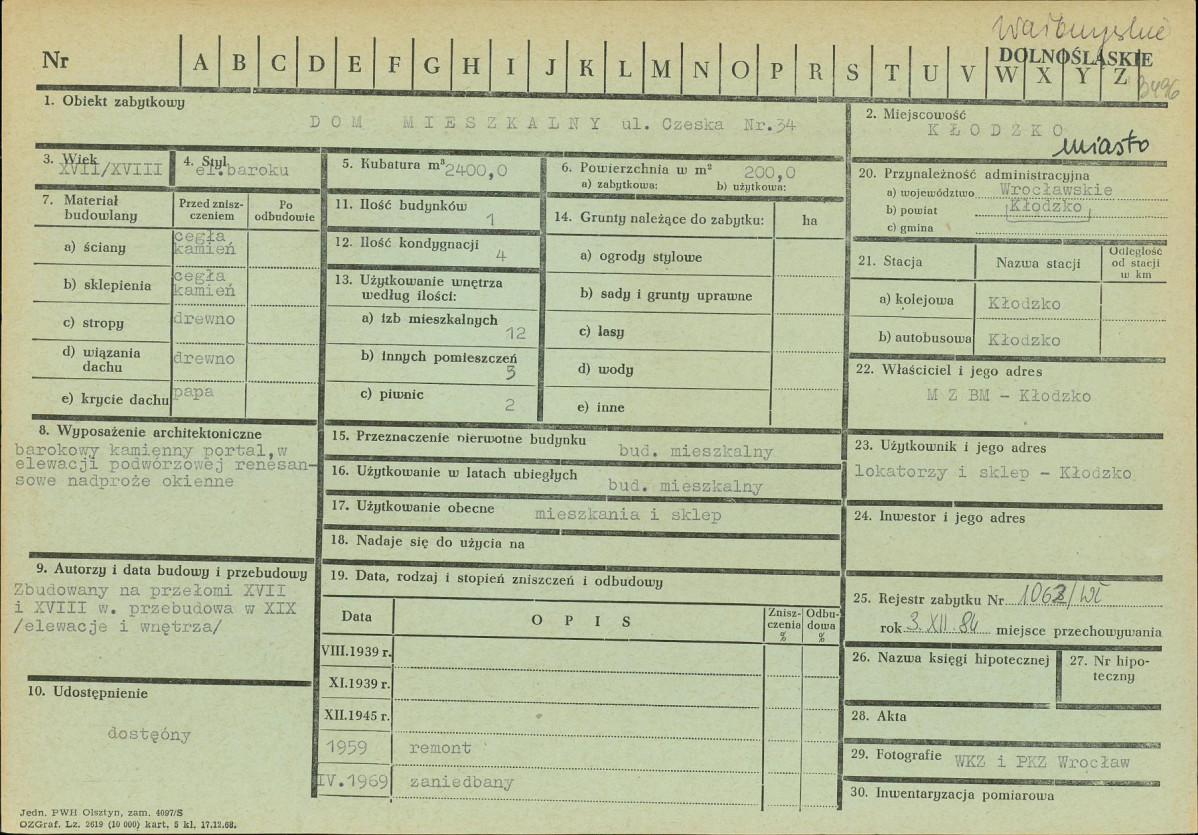 Wałbrzyskie
DOLNOŚLĄSKIE
Nr A B C D E F G H I J K L M N O P R S T U V W X Y Z
3496
1. Obiekt zabytkowy
DOM MIESZKALNY ul. Czeska Nr.34
2. Miejscowość
KŁODZKO
miasto
3. Wiek
XVII/XVIII
4. Styl
el.baroku
5. Kubatura m³ 2400,0
6. Powierzchnia w m² 200,0
a) zabytkowa: b) użytkowa:
7. Materiał budowlany
Przed zniszczeniem
Po odbudowie
a) ściany
cegła
kamień
b) sklepienia
cegła
kamień
c) stropy drewno
d) wiązania dachu drewno
e) krycie dachu papa
8. Wyposażenie architektoniczne
barokowy kamienny portal,w
elewacji podwórzowej renesan-
sowe nadproże okienne
9. Autorzy i data budowy i przebudowy
Zbudowany na przełomi XVII
i XVIII w. przebudowa w XIX
/elewacje i wnętrza/
10. Udostępnienie
dostęóny
11. Ilość budynków
1
12. Ilość kondygnacji
4
13. Użytkowanie wnętrza
według ilości:
a) izb mieszkalnych
12
b) innych pomieszczeń
3
c) piwnic
2
14. Grunty należące do zabytku: ha
a) ogrody stylowe
b) sady i grunty uprawne
c) lasy
d) wody
e) inne
15. Przeznaczenie pierwotne budynku
bud. mieszkalny
16. Użytkowanie w latach ubiegłych
bud. mieszkalny
17. Użytkowanie obecne mieszkania i sklep
18. Nadaje się do użycia na
19. Data, rodzaj i stopień zniszczeń i odbudowy
Data OPIS Zniszczenia % Odbudowa %
VIII.1939 r.
XI.1939 r.
XII.1945 r.
1959 remont
IV.1969 zaniedbany
20. Przynależność administracyjna
a) województwo Wrocławskie
b) powiat Kłodzko
c) gmina
21. Stacja Nazwa stacji Odległość od stacji w km
a) kolejowa Kłodzko
b) autobusowa Kłodzko
22. Właściciel i jego adres
M Z BM - Kłodzko
23. Użytkownik i jego adres
lokatorzy i sklep - Kłodzko
24. Inwestor i jego adres
25. Rejestr zabytku Nr 1062/Wł
rok 3.XII.84 miejsce przechowywania
26. Nazwa księgi hipotecznej
27. Nr hipo-
teczny
28. Akta
29. Fotografie WKZ i PKZ Wrocław
30. Inwentaryzacja pomiarowa
Jedn. PWH Olsztyn, zam. 4097/S
OZGraf. Lz. 2619 (10 000) kart. 5 kl. 17.12.68.